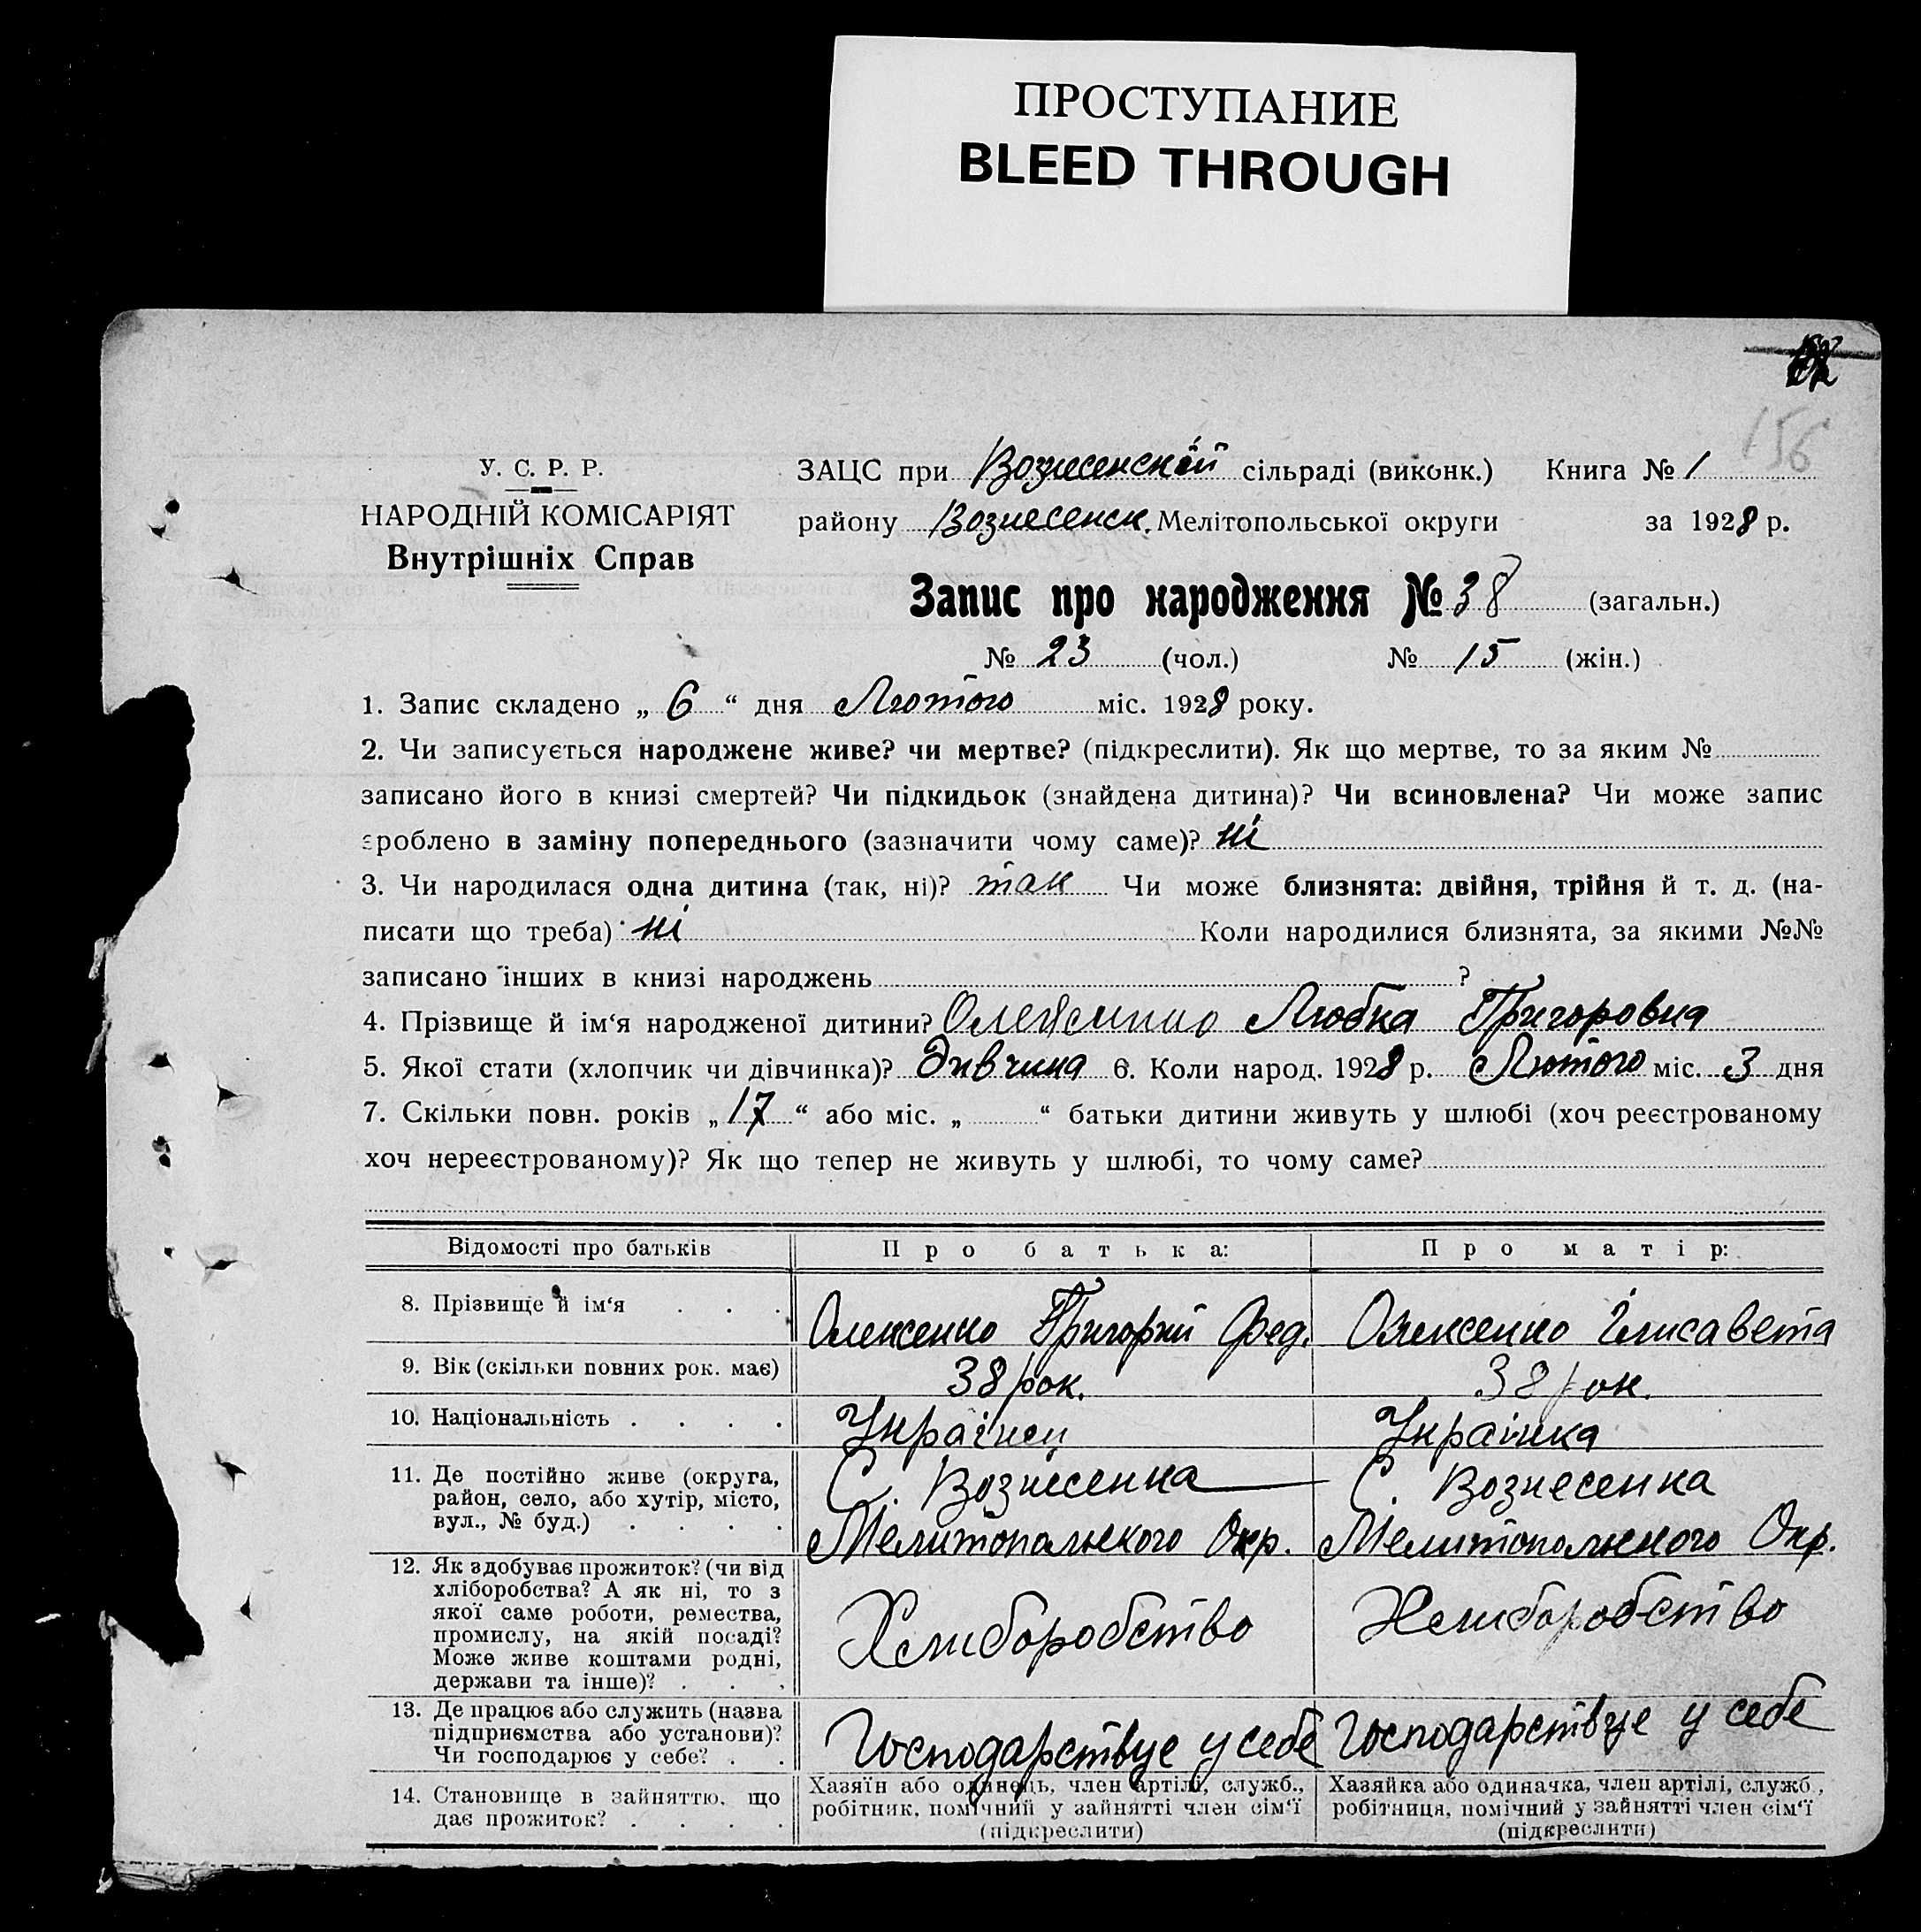 ПРОСТУПАНИЕ
BLEED THROUGH
156
У. С. Р. Р.
НАРОДНІЙ КОМІСАРІЯТ
Внутрішніх Справ
ЗАЦС при Вознесенскій сільраді (виконк.) Книга № 1
району Вознесенск. Мелітопольської округи за 1928 р.
Запис про народження № 38 (загальн.)
№ 23 (чол.) № 15 (жін.)
1. Запис складено „ 6 “ дня Лютого міс. 1928 року.
2. Чи записується народжене живе? чи мертве? (підкреслити). Як що мертве, то за яким №
записано його в книзі смертей? Чи підкидьок (знайдена дитина)? Чи всиновлена? Чи може запис
зроблено в заміну попереднього (зазначити чому саме)? ні
3. Чи народилася одна дитина (так, ні)? так Чи може близнята: двійня, трійня й т. д. (на-
писати що треба) ні Коли народилися близнята, за якими №№
записано інших в книзі народжень ?
4. Прізвище й ім‘я народженої дитини? Олексенко Любка Григоровна
5. Якої стати (хлопчик чи дівчинка)? Дивчина 6. Коли народ. 1928 р. Лютого міс. 3 дня
7. Скільки повн. років „ 17 “ або міс. „ “ батьки дитини живуть у шлюбі (хоч реєстрованому
хоч нереєстрованому)? Як що тепер не живуть у шлюбі, то чому саме?
Відомості про батьків Про батька: Про матір:
8. Прізвище й ім‘я . . . Олексенко Григорий Фед. Олексенко Єлисавета
9. Вік (скільки повних рок. має) 38 рок. 38 рок.
10. Національність . . . . Українец Українка
11. Де постійно живе (округа,
район, село, або хутір, місто,
вул., № буд.) . . . .
С. Вознесенка
Мелитопольского Окр.
С. Вознесенка
Мелитопольского Окр.
12. Як здобуває прожиток? (чи від
хліборобства? А як ні, то з
якої саме роботи, ремества,
промислу, на якій посаді?
Може живе коштами родні,
держави та інше)? . . .
Хлиборобство
Хлиборобство
13. Де працює або служить (назва
підприємства або установи)?
Чи господарює у себе? . .
Господарствує у себе
Господарствує у себе
14. Становище в зайняттю, що
дає прожиток? . . . .
Хазяїн або одинець, член артілі, служб.,
робітник, помічний у зайнятті член сім‘ї
(підкреслити)
Хазяйка або одиначка, член артілі, служб.,
робітниця, помічний у зайнятті член сім‘ї
(підкреслити)